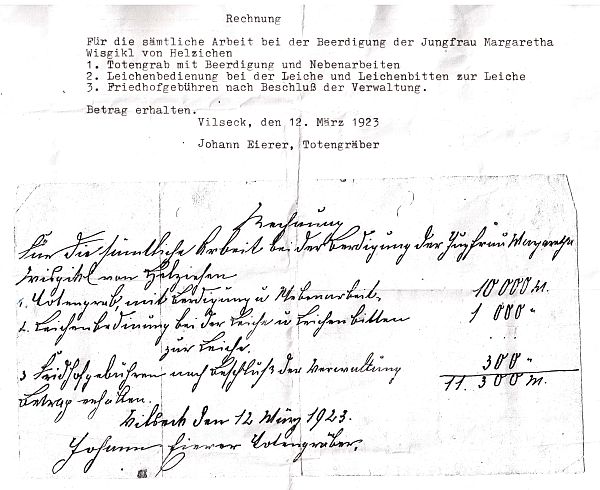 Rechnung
Für die sämtliche Arbeit bei der Beerdigung der Jungfrau Margaretha
Wisgikl von Helzichen
1. Totengrab mit Beerdigung und Nebenarbeiten
2. Leichenbedienung bei der Leiche und Leichenbitten zur Leiche
3. Friedhofgebühren nach Beschluß der Verwaltung.
Betrag erhalten.
Vilseck, den 12. März 1923
Johann Eierer, Totengräber
Rechnung
Für die sämtliche Arbeit bei der Berdigung der Jungfrau Margaretha
von Helziehen
1. Totengrab mit Berdigung u Nebenarbeit. 10 000 M.
2. Leichenbedinung bei der Leiche u Leichenbitten 1 000 "
zur Leiche.
3 Fridhofgebühren nach Beschluß der Verwaltung 300 "
11. 300 M.
Betrag erhalten.
Vilseck den 12 März 1923.
Johann Eierer Totengräber.